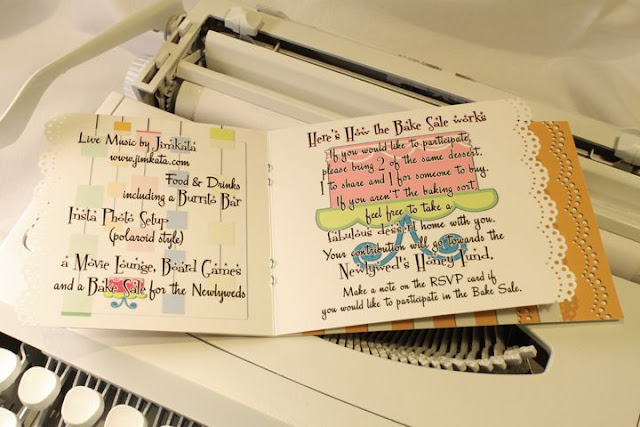 Live Music by Jimkata
www.jimkata.com
Food & Drinks
including a Burrito Bar
Insta Photo Setup
(polaroid style)
a Movie Lounge, Board Games
and a Bake Sale for the Newlyweds
Here's How the Bake Sale works
If you would like to participate,
please bring 2 of the same dessert.
1 to share and 1 for someone to buy.
If you aren't the baking sort,
feel free to take a
fabulous dessert home with you.
Your contribution will go towards the
Newlywed's Honey Fund.
Make a note on the RSVP card if
you would like to participate in the Bake Sale.